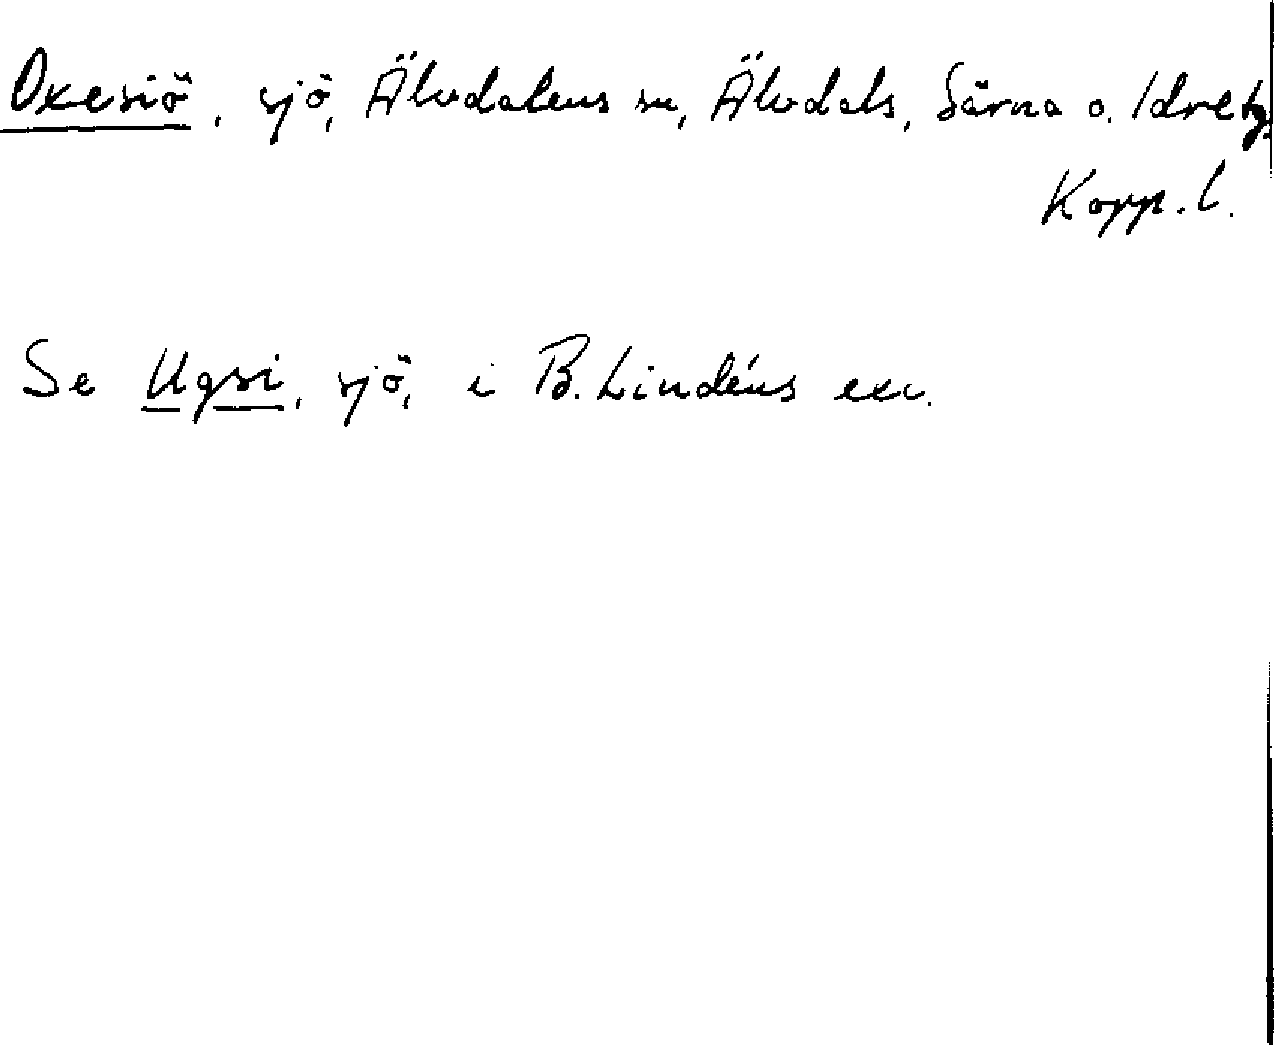 Oxesiö, sjö, Älvdalens sn, Älvdals, Särna o. Idre tg.
Kopp. l.
Se Uqsi, sjö, i B. Lindéns exc.